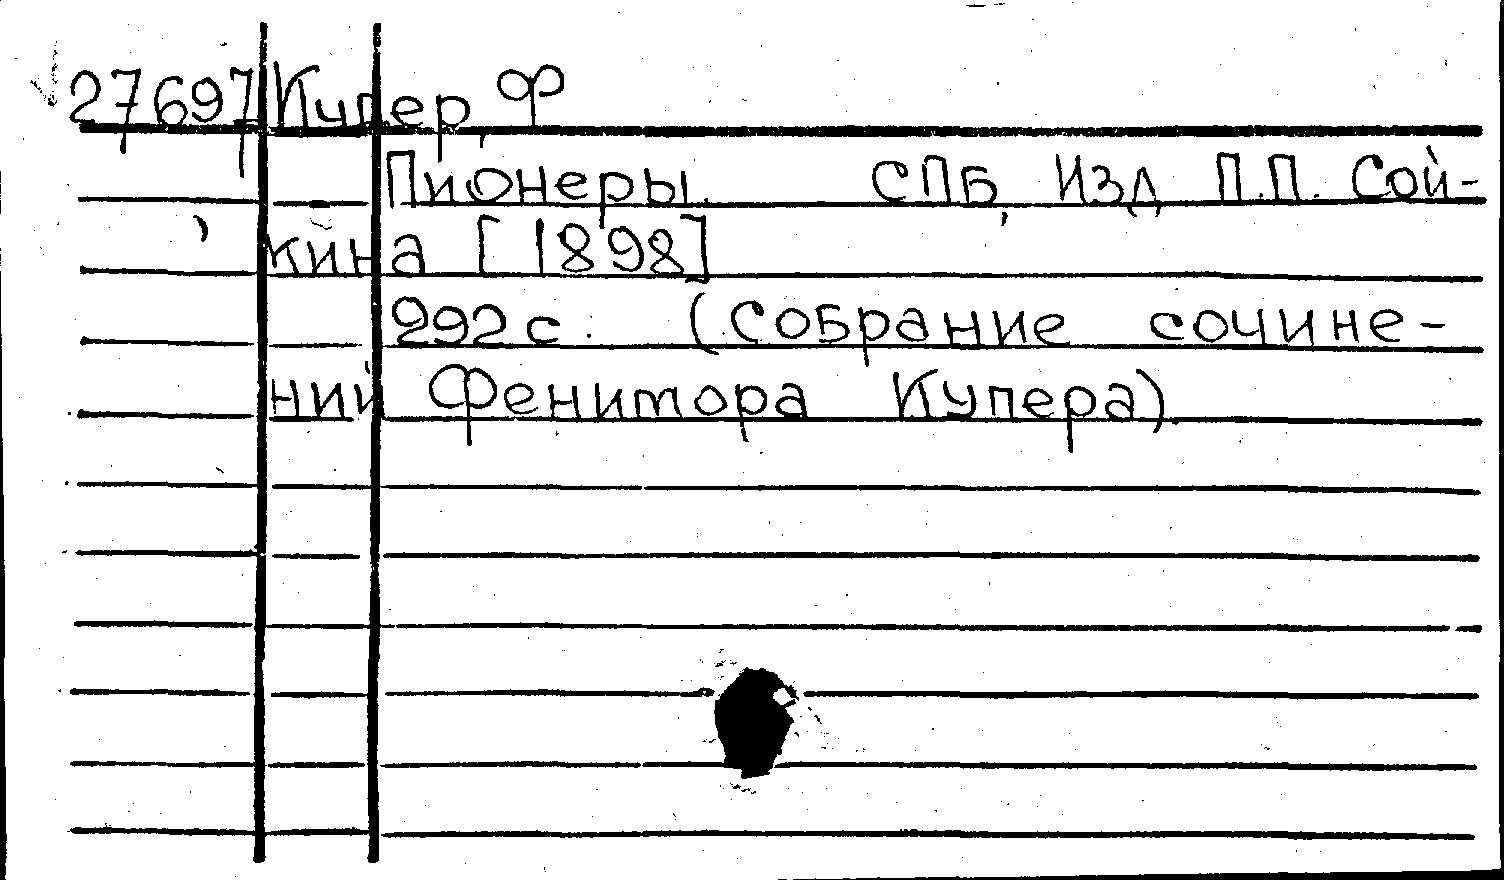 27697 Купер, Ф
Пионеры. СПБ, Изд П.П. Сой-
кина [1898]
292 с. (Собрание сочине-
ний Фенимора Купера).